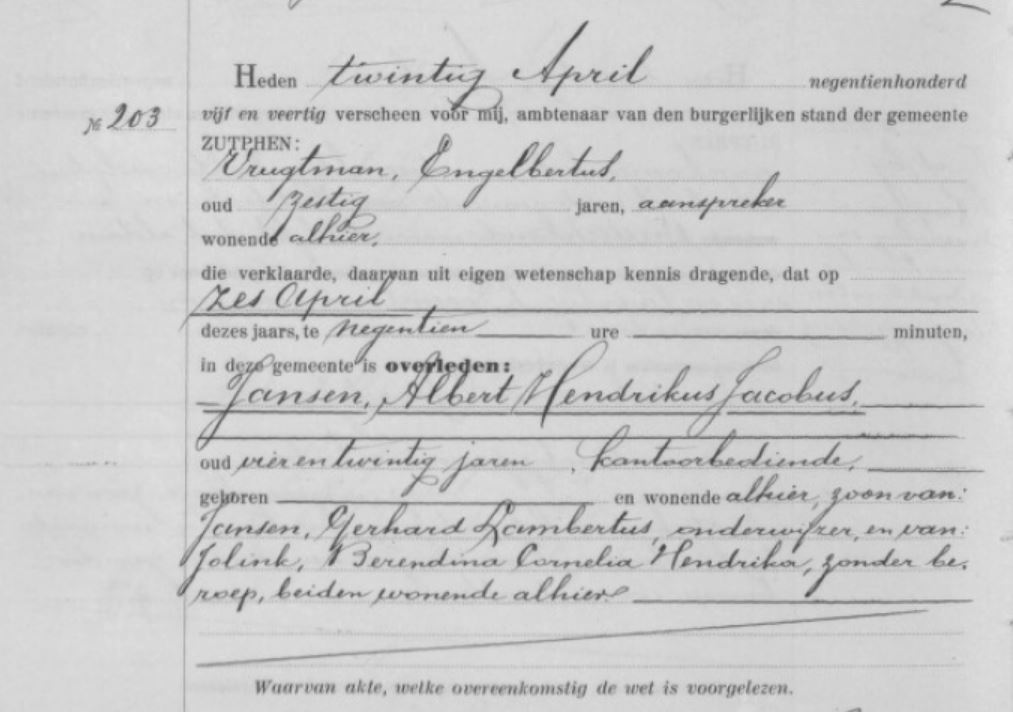 Heden twintig April negentienhonderd
№ 203 vijf en veertig verscheen voor mij, ambtenaar van den burgerlijken stand der gemeente
ZUTPHEN:
Vrugtman, Engelbertus,
oud zestig jaren, aanspreker
wonende alhier,
die verklaarde, daarvan uit eigen wetenschap kennis dragende, dat op
zes April
dezes jaars, te negentien ure minuten,
in deze gemeente is overleden:
Jansen, Albert Hendrikus Jacobus,
oud vier en twintig jaren, kantoorbediende,
geboren en wonende alhier, zoon van:
Jansen, Gerhard Lambertus, onderwijzer, en van:
Jolink, Berendina Cornelia Hendrika, zonder be-
roep, beiden wonende alhier.
Waarvan akte, welke overeenkomstig de wet is voorgelezen.